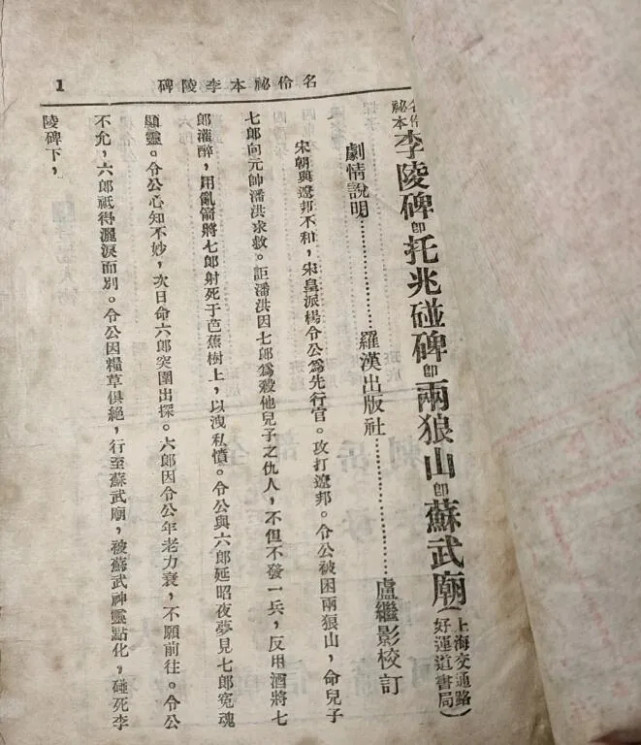 名伶祕本李陵碑
1
名伶祕本 李陵碑 卽 托兆碰碑 卽 兩狼山 卽 蘇武廟（上海交通路好運道書局）
劇情說明……………羅漢出版社……………盧繼影校訂
宋朝與遼邦不和，宋皇派楊令公爲先行官。攻打遼邦。令公被困兩狼山，命兒子
七郎向元帥潘洪求救。詎潘洪因七郎爲殺他兒子之仇人，不但不發一兵，反用酒將七
郎灌醉，用亂箭將七郎射死于芭蕉樹上，以洩私憤。令公與六郎延昭夜夢見七郎冤魂
顯靈。令公心知不妙，次日命六郎突圍出探。六郎因令公年老力衰，不願前往。令公
不允，六郎祇得灑淚而別。令公因糧草俱絕，行至蘇武廟，被蘇武神靈點化，碰死李
陵碑下，